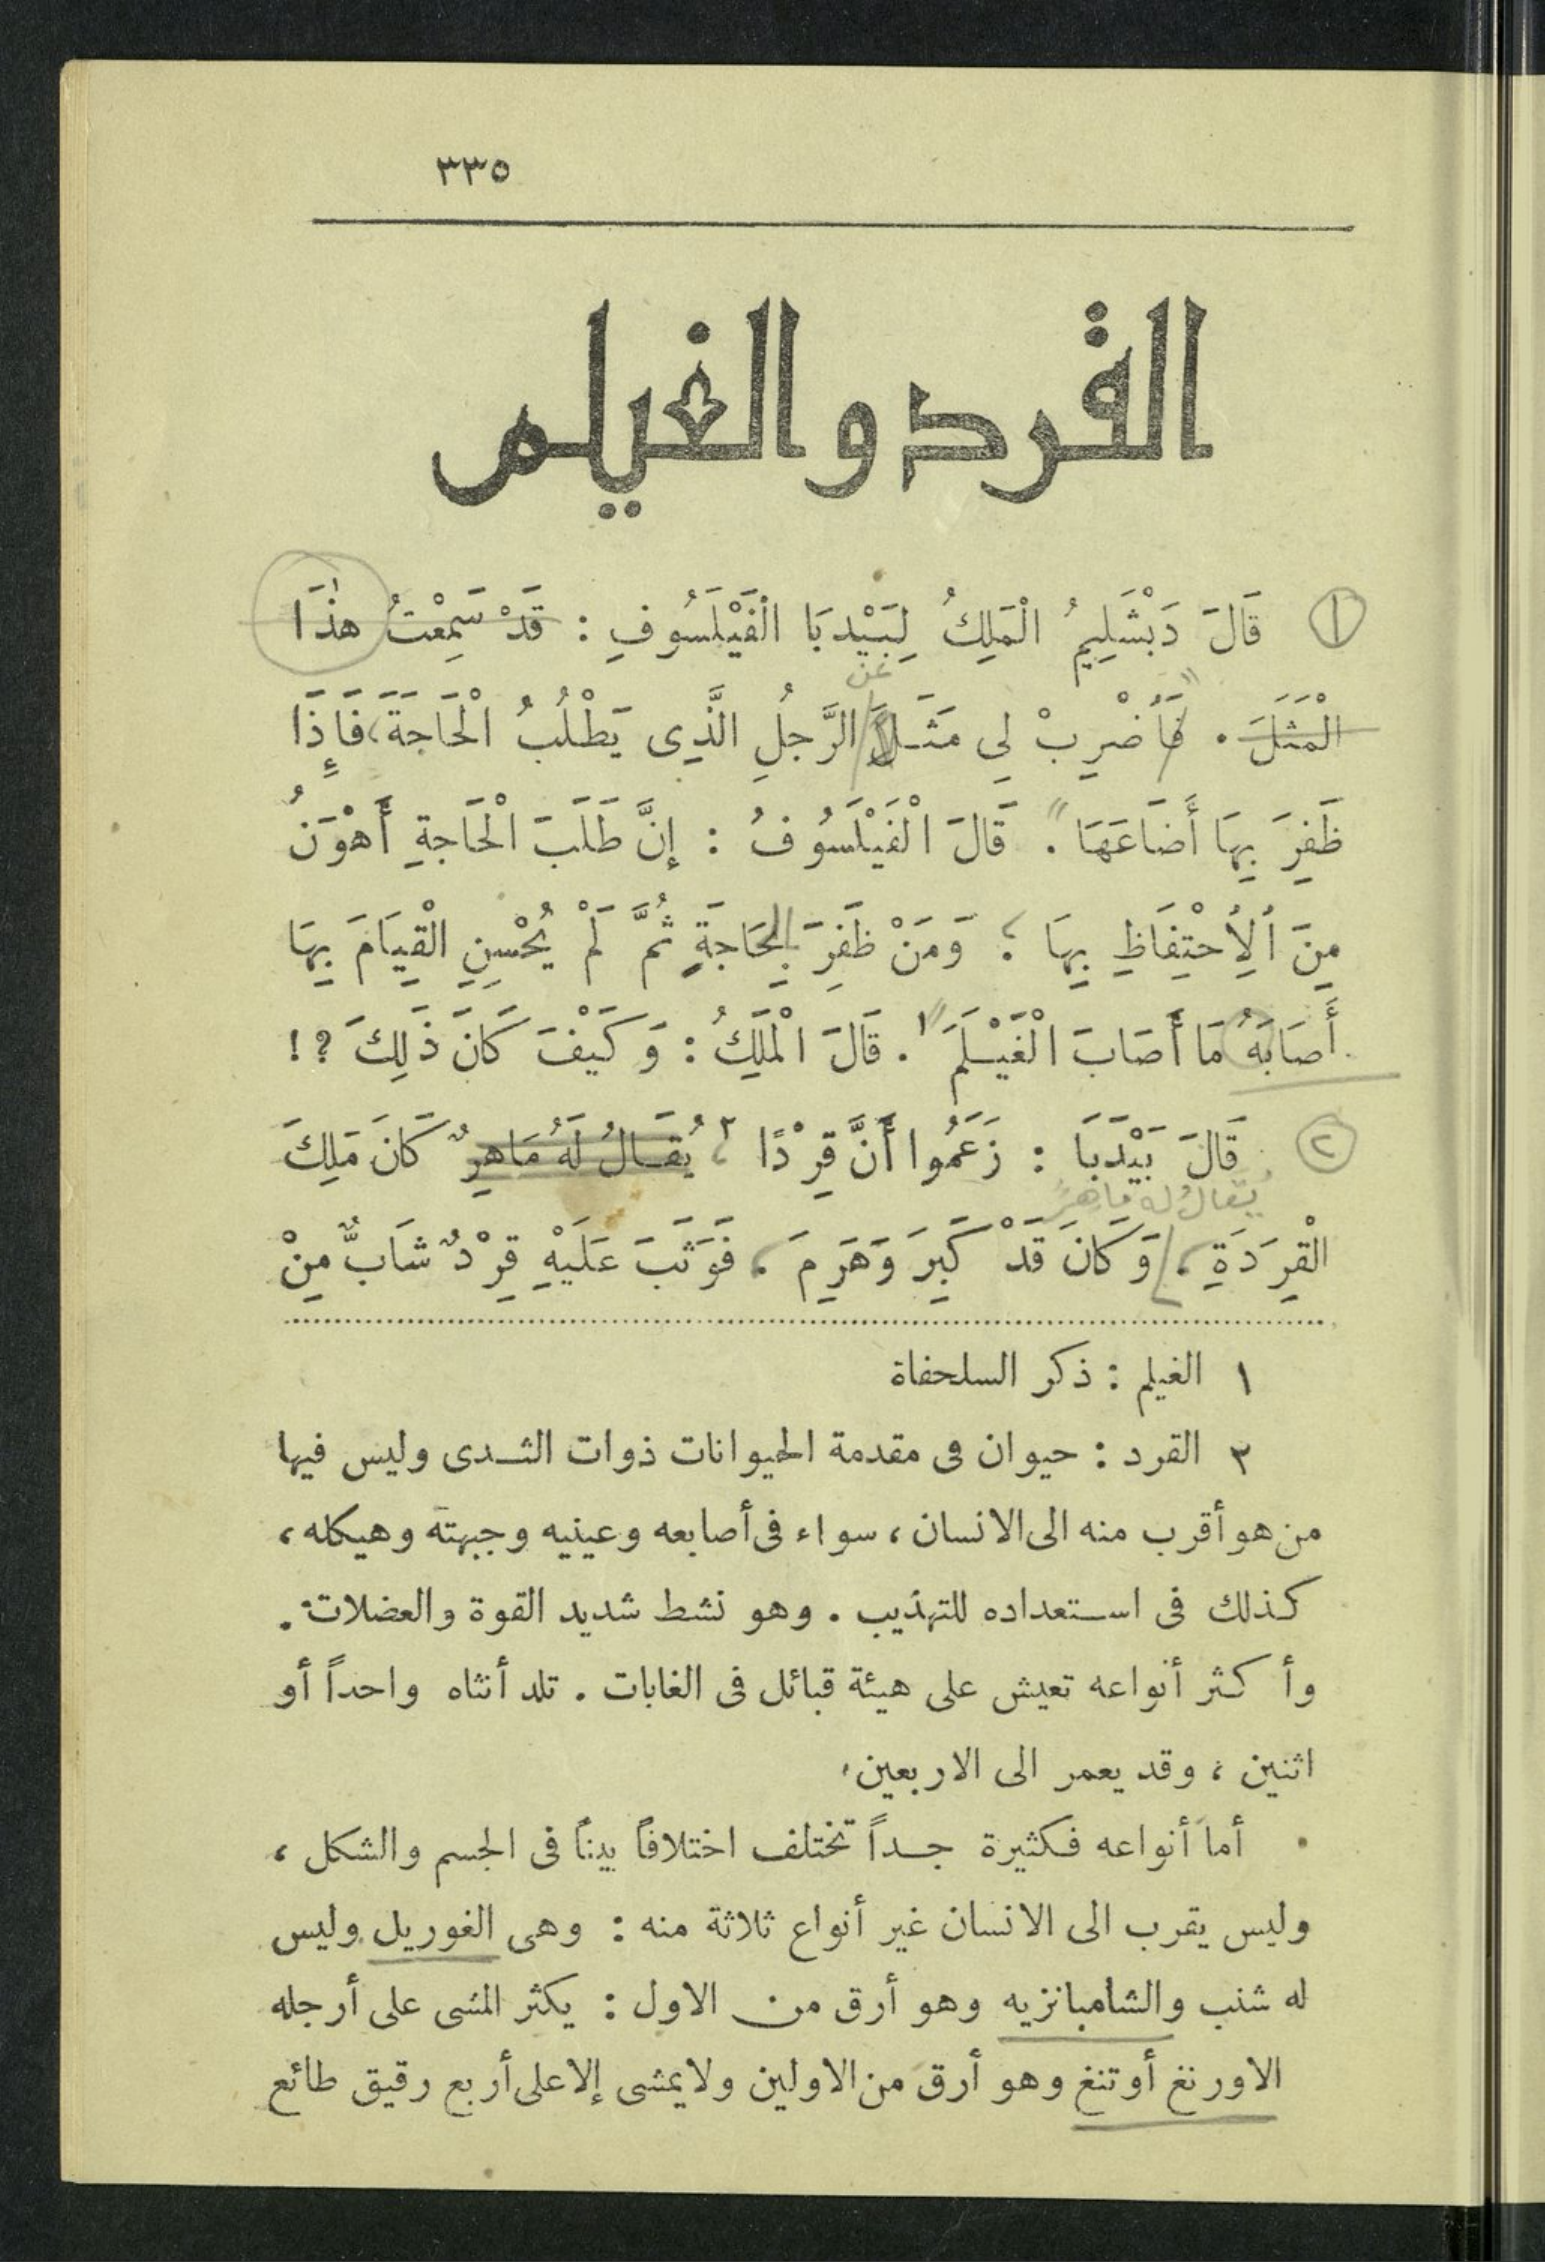 ٣٣٥
القرد والغيلم
١ قَالَ دَبْشَلِيمُ الْمَلِكُ لِبَيْدَبَا الْفَيْلَسُوفِ : قَدْ سَمِعْتُ هٰذَا
عن
الْمَثَلَ . فَأَضْرِبْ لِي مَثَلَ الرَّجُلِ الَّذِى يَطْلُبُ الْحَاجَةَ، فَإِذَا
ظَفِرَ بِهَا أَضَاعَهَا . قَالَ الْفَيْلَسُوفُ : إِنَّ طَلَبَ الْحَاجَةِ أَهْوَنُ
مِنَ اُلِاُحْتِفَاظِ بِهَا ؛ وَمَنْ ظَفِرَ بِالْحَاجَةِ ثُمَّ لَمْ يُحْسِنِ الْقِيَامَ بِهَا
أَصَابَهُ مَا أَصَابَ الْغَيْلَمَ ١ . قَالَ الْمَلِكُ : وَكَيْفَ كَانَ ذَلِكَ ؟ !
٢ قَالَ بَيْدَبَا : زَعَمُوا أَنَّ قِرْدًا ٢ ، يُقَالُ لَهُ مَاهِرٌ كَانَ مَلِكَ
يُقالُ له ماهرٌ
الْقِرَدَةِ ، وَكَانَ قَدْ كَبِرَ وَهَرِمَ ، فَوَثَبَ عَلَيْهِ قِرْدٌ شَابٌّ مِنْ
١ الغيلم : ذكر السلحفاة
٢ القرد : حيوان فى مقدمة الحيوانات ذوات الثدى وليس فيها
من هو أقرب منه الى الانسان ، سواء فى أصابعه وعينيه وجبهته وهيكله ،
كذلك فى استعداده للتهذيب . وهو نشط شديد القوة والعضلات .
وأكثر أنواعه تعيش على هيئة قبائل فى الغابات . تلد أنثاه واحداً أو
اثنين ، وقد يعمر الى الاربعين
أما أنواعه فكثيرة جداً تختلف اختلافاً بيناً فى الجسم والشكل ،
وليس يقرب الى الانسان غير أنواع ثلاثة منه : وهى الغوريل وليس
له شنب والشامبانزيه وهو أرق من الاول : يكثر المشى على أرجله
الاورنغ أوتنغ وهو أرق من الاولين ولايمشى إلا على أربع رقيق طائع